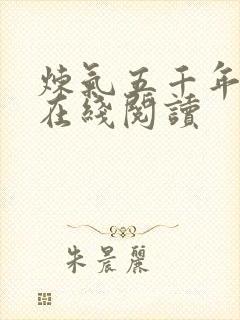 煉氣五千年
在綫閱讀
朱晨麗